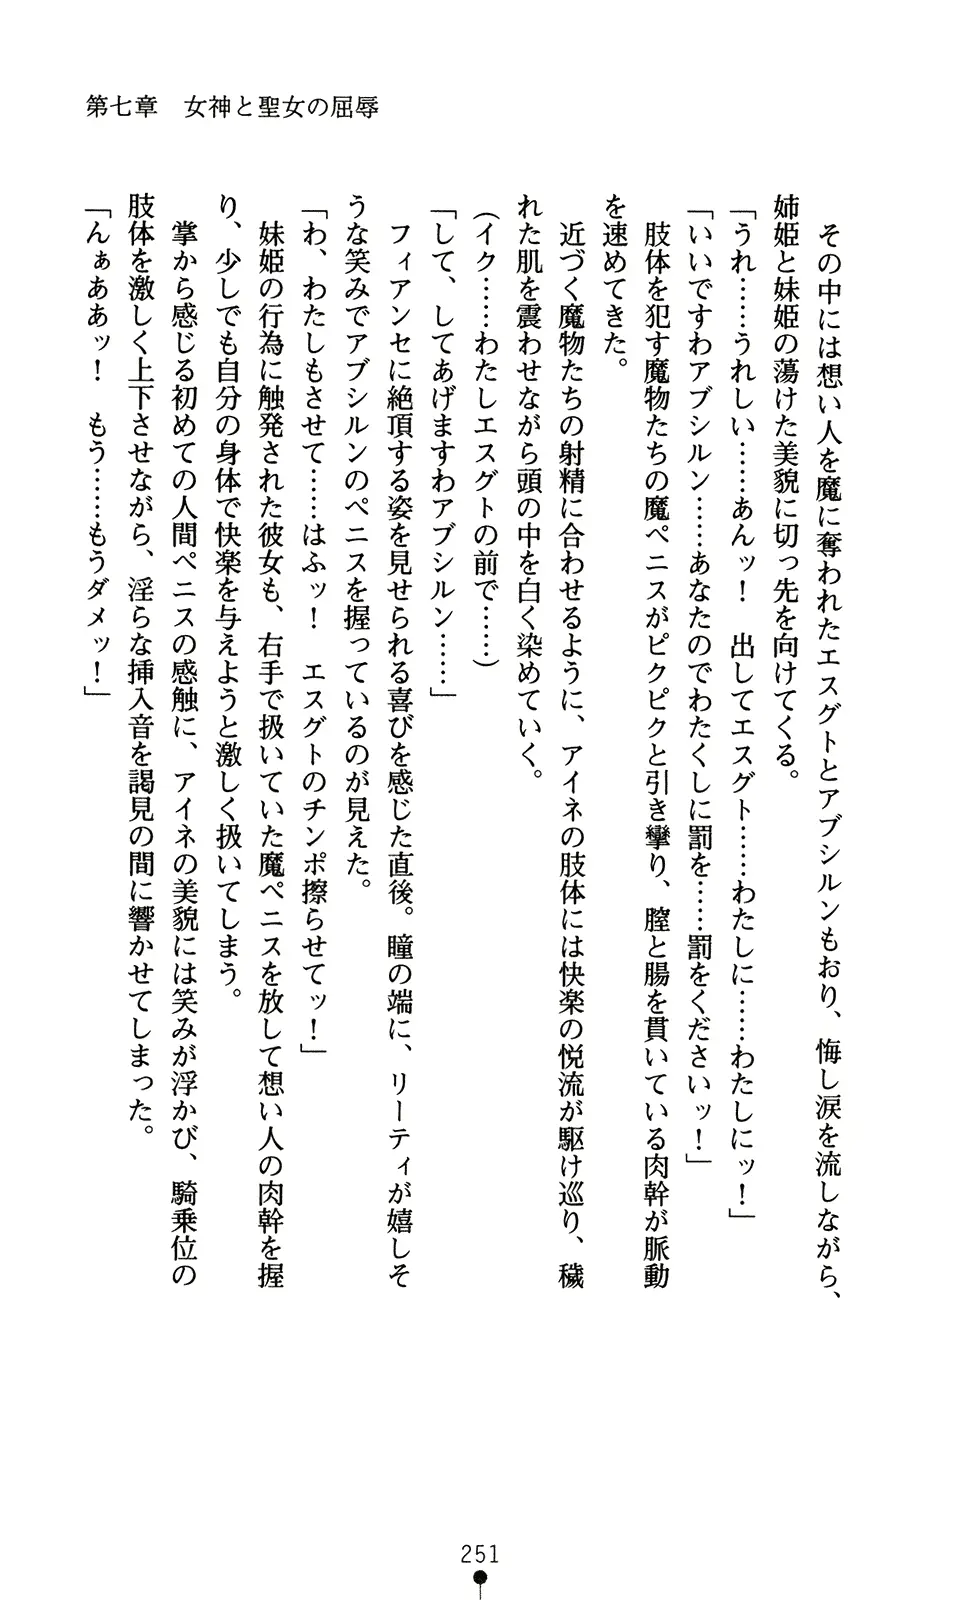 第七章　女神と聖女の屈辱
　その中には想い人を魔に奪われたエスグトとアブシルンもおり、悔し涙を流しながら、
姉姫と妹姫の蕩けた美貌に切っ先を向けてくる。
「うれ……うれしい……あんッ！　出してエスグト……わたしに……わたしにッ！」
「いいですわアブシルン……あなたのでわたくしに罰を……罰をくださいッ！」
　肢体を犯す魔物たちの魔ペニスがピクピクと引き攣り、膣と腸を貫いている肉幹が脈動
を速めてきた。
　近づく魔物たちの射精に合わせるように、アイネの肢体には快楽の悦流が駆け巡り、穢
れた肌を震わせながら頭の中を白く染めていく。
（イク……わたしエスグトの前で……）
「して、してあげますわアブシルン……」
　フィアンセに絶頂する姿を見せられる喜びを感じた直後。瞳の端に、リーティが嬉しそ
うな笑みでアブシルンのペニスを握っているのが見えた。
「わ、わたしもさせて……はふッ！　エスグトのチンポ擦らせてッ！」
　妹姫の行為に触発された彼女も、右手で扱いていた魔ペニスを放して想い人の肉幹を握
り、少しでも自分の身体で快楽を与えようと激しく扱いてしまう。
　掌から感じる初めての人間ペニスの感触に、アイネの美貌には笑みが浮かび、騎乗位の
肢体を激しく上下させながら、淫らな挿入音を謁見の間に響かせてしまった。
「んぁああッ！　もう……もうダメッ！」
251